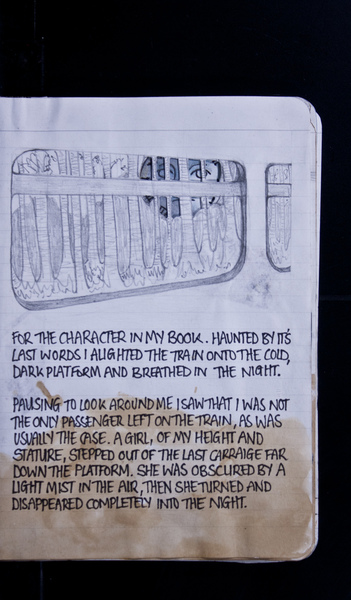 FOR THE CHARACTER IN MY BOOK. HAUNTED BY IT'S
LAST WORDS I ALIGHTED THE TRAIN ONTO THE COLD,
DARK PLATFORM AND BREATHED IN THE NIGHT.
PAUSING TO LOOK AROUND ME I SAW THAT I WAS NOT
THE ONLY PASSENGER LEFT ON THE TRAIN, AS WAS
USUALLY THE CASE. A GIRL, OF MY HEIGHT AND
STATURE, STEPPED OUT OF THE LAST CARRAIGE FAR
DOWN THE PLATFORM. SHE WAS OBSCURED BY A
LIGHT MIST IN THE AIR, THEN SHE TURNED AND
DISAPPEARED COMPLETELY INTO THE NIGHT.